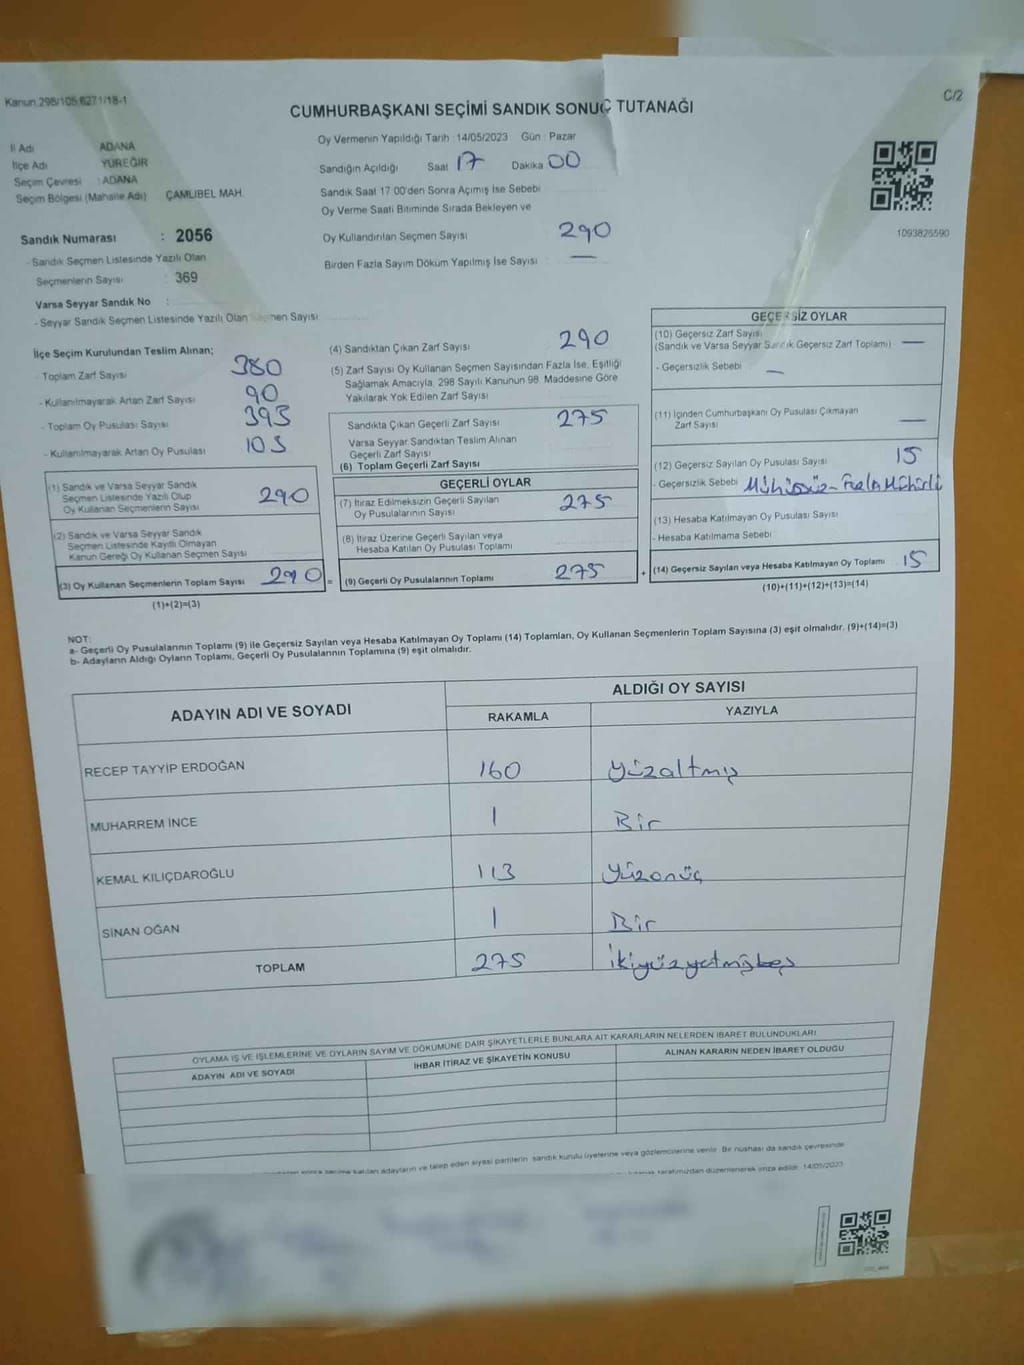 Kanun 298/105,6271/18-1
C/2
CUMHURBAŞKANI SEÇİMİ SANDIK SONUÇ TUTANAĞI
İl Adı ADANA
İlçe Adı YÜREĞİR
Seçim Çevresi : ADANA
Seçim Bölgesi (Mahalle Adı) ÇAMLIBEL MAH.
Sandık Numarası : 2056
- Sandık Seçmen Listesinde Yazılı Olan
Seçmenlerin Sayısı : 369
Varsa Seyyar Sandık No :
- Seyyar Sandık Seçmen Listesinde Yazılı Olan Seçmen Sayısı
Oy Vermenin Yapıldığı Tarih 14/05/2023 Gün : Pazar
Sandığın Açıldığı Saat 17 Dakika 00
Sandık Saat 17 00'den Sonra Açımış İse Sebebi
Oy Verme Saati Bitiminde Sırada Bekleyen ve
Oy Kullandırılan Seçmen Sayısı 290
Birden Fazla Sayım Döküm Yapılmış İse Sayısı : —
1093826590
İlçe Seçim Kurulundan Teslim Alınan;
- Toplam Zarf Sayısı 380
- Kullanılmayarak Artan Zarf Sayısı 90
- Toplam Oy Pusulası Sayısı 393
- Kullanılmayarak Artan Oy Pusulası 103
(1) Sandık ve Varsa Seyyar Sandık
Seçmen Listesinde Yazılı Olup
Oy Kullanan Seçmenlerin Sayısı 290
(2) Sandık ve Varsa Seyyar Sandık
Seçmen Listesinde Kayıtlı Olmayan
Kanun Gereği Oy Kullanan Seçmen Sayısı
(3) Oy Kullanan Seçmenlerin Toplam Sayısı 290 =
(1)+(2)=(3)
(4) Sandıktan Çıkan Zarf Sayısı 290
(5) Zarf Sayısı Oy Kullanan Seçmen Sayısından Fazla İse, Eşitliği
Sağlamak Amacıyla, 298 Sayılı Kanunun 98. Maddesine Göre
Yakılarak Yok Edilen Zarf Sayısı
Sandıkta Çıkan Geçerli Zarf Sayısı 275
Varsa Seyyar Sandıktan Teslim Alınan
Geçerli Zarf Sayısı
(6) Toplam Geçerli Zarf Sayısı
GEÇERLİ OYLAR
(7) İtiraz Edilmeksizin Geçerli Sayılan
Oy Pusulalarının Sayısı 275
(8) İtiraz Üzerine Geçerli Sayılan veya
Hesaba Katılan Oy Pusulası Toplamı
(9) Geçerli Oy Pusulalarının Toplamı 275 +
GEÇERSİZ OYLAR
(10) Geçersiz Zarf Sayısı
(Sandık ve Varsa Seyyar Sandık Geçersiz Zarf Toplamı) —
- Geçersizlik Sebebi —
(11) İçinden Cumhurbaşkanı Oy Pusulası Çıkmayan
Zarf Sayısı —
(12) Geçersiz Sayılan Oy Pusulası Sayısı 15
- Geçersizlik Sebebi Mühürsüz - Fazla Mühürlü
(13) Hesaba Katılmayan Oy Pusulası Sayısı
- Hesaba Katılmama Sebebi
(14) Geçersiz Sayılan veya Hesaba Katılmayan Oy Toplamı 15
(10)+(11)+(12)+(13)=(14)
NOT:
a- Geçerli Oy Pusulalarının Toplamı (9) ile Geçersiz Sayılan veya Hesaba Katılmayan Oy Toplamı (14) Toplamları, Oy Kullanan Seçmenlerin Toplam Sayısına (3) eşit olmalıdır. (9)+(14)=(3)
b- Adayların Aldığı Oyların Toplamı, Geçerli Oy Pusulalarının Toplamına (9) eşit olmalıdır.
ADAYIN ADI VE SOYADI
ALDIĞI OY SAYISI
RAKAMLA YAZIYLA
RECEP TAYYİP ERDOĞAN 160 Yüzaltmış
MUHARREM İNCE 1 Bir
KEMAL KILIÇDAROĞLU 113 Yüzonüç
SİNAN OĞAN 1 Bir
TOPLAM 275 İkiyüzyetmişbeş
OYLAMA İŞ VE İŞLEMLERİNE VE OYLARIN SAYIM VE DÖKÜMÜNE DAİR ŞİKAYETLERLE BUNLARA AİT KARARLARIN NELERDEN İBARET BULUNDUKLARI
ADAYIN ADI VE SOYADI İHBAR İTİRAZ VE ŞİKAYETİN KONUSU ALINAN KARARIN NEDEN İBARET OLDUĞU
seçime katılan adayların ve talep eden siyasi partilerin sandık kurulu üyelerine veya gözlemcilerine verilir. Bir nüshası da sandık çevresinde
tarafımızdan düzenlenerek imza edildi. 14/05/2023